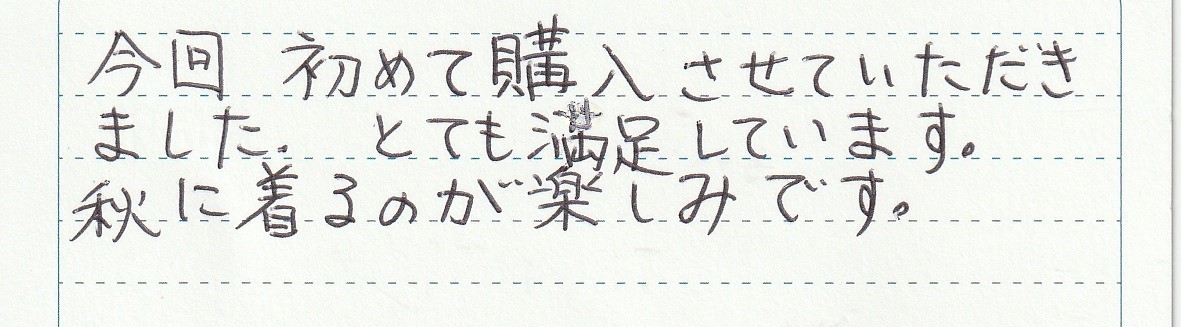 今回 初めて購入させていただき
ました. とても満足しています。
秋に着るのが楽しみです。